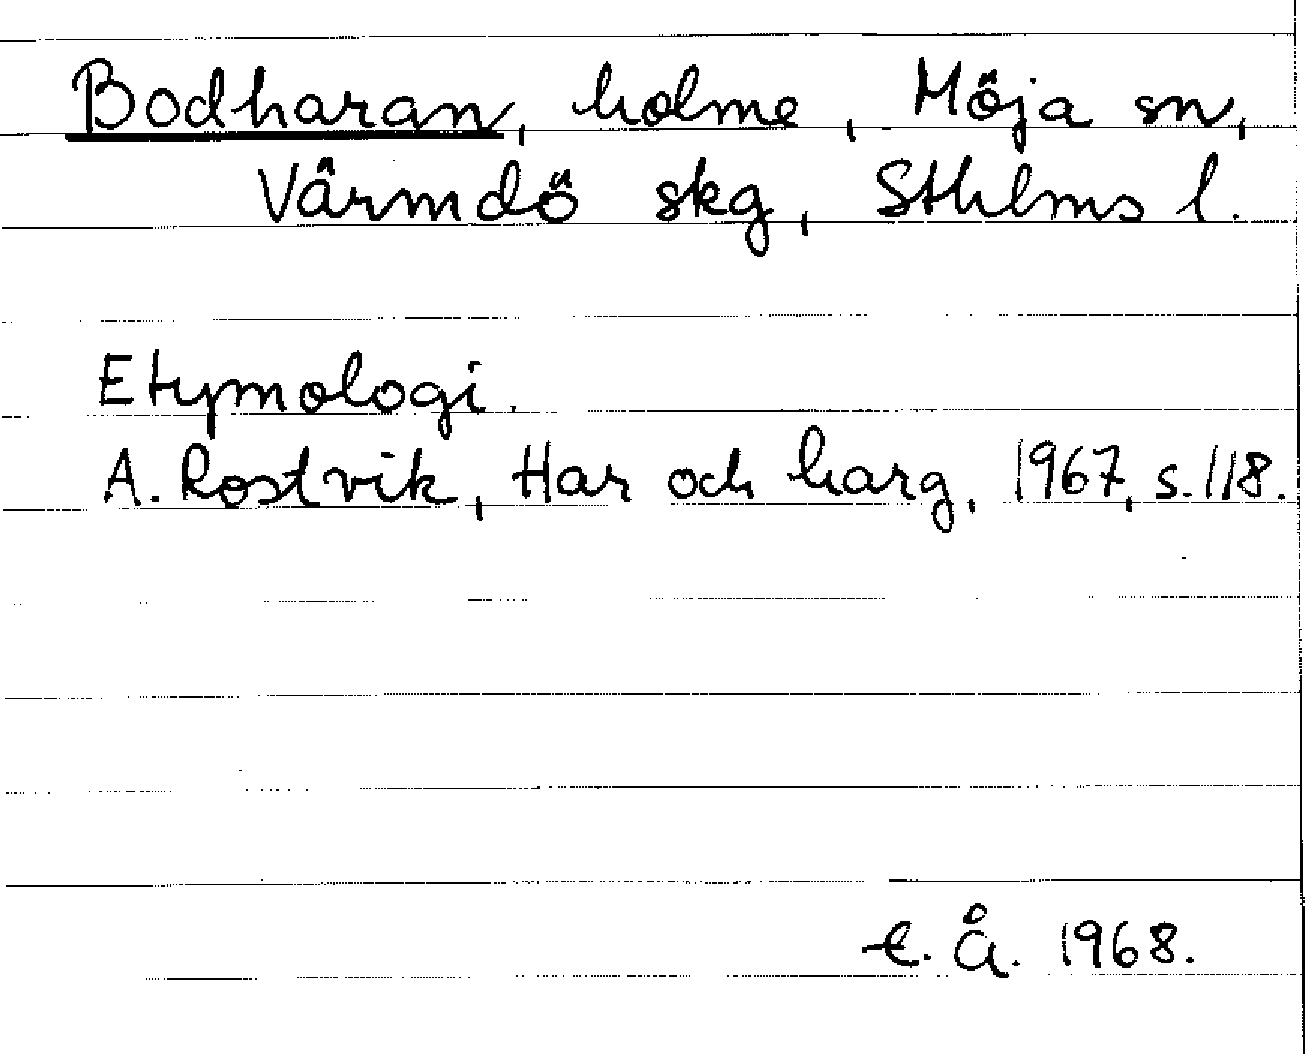 Bodharan, holme, Möja sn,
Värmdö skg, Sthlms l.
Etymologi.
A. Rostvik, Har och harg, 1967, s. 118.
E. Å. 1968.